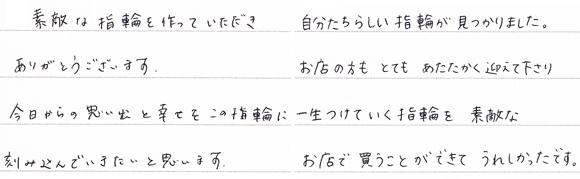 素敵な指輪を作っていただき
ありがとうございます.
今日からの思い出と幸せをこの指輪に
刻み込んでいきたいと思います.
自分たちらしい指輪が見つかりました。
お店の方もとてもあたたかく迎えて下さり
一生つけていく指輪を素敵な
お店で買うことができてうれしかったです。